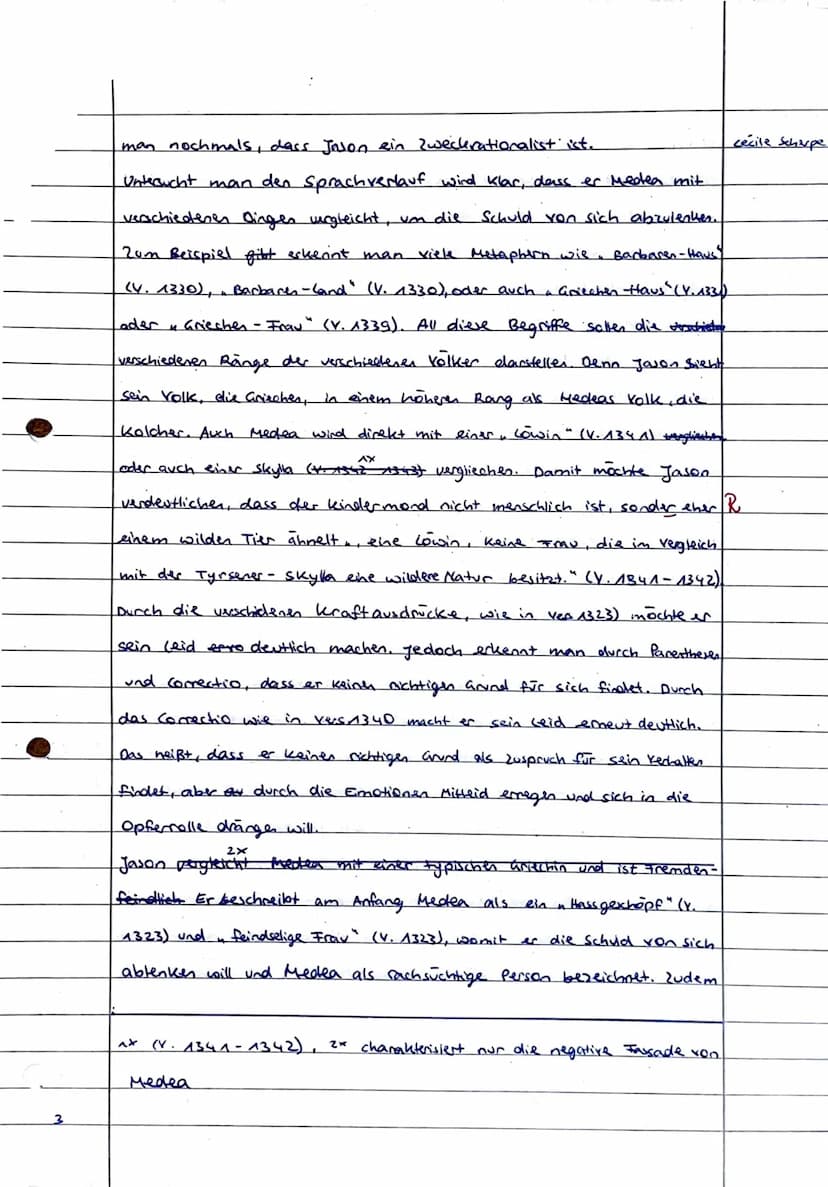 man nochmals, dass Jason ein Zweckrationalist ist.
Cécile Scharpe
Untersucht man den Sprachverlauf wird klar, dass er Medea mit
verschiedenen Dingen vergleicht, um die Schuld von sich abzulenken.
Zum Beispiel gibt erkennt man viele Metaphern wie „Barbaren-Haus"
(V. 1330), „Barbaren-Land" (V. 1330), oder auch „Griechen-Haus" (V. 1331)
oder „Griechen-Frau" (V. 1339). All diese Begriffe sollen die
verschiedenen Ränge der verschiedenen Völker darstellen. Denn Jason sieht
sein Volk, die Griechen, in einem höheren Rang als Medeas Volk, die
Kolcher. Auch Medea wird direkt mit einer „Löwin" (V. 1341) verglichen
1x
oder auch einer Skylla (V. 1342-1343) vergliechen. Damit möchte Jason
verdeutlichen, dass der Kindermord nicht menschlich ist, sonder eher
R
einem wilden Tier ähnelt „eine Löwin, keine Frau, die im Vergleich
mit der Tyrsener-Skylla eine wildere Natur besitzt." (V. 1341-1342)
Durch die verschidenen Kraftausdrücke, wie in Vers 1323) möchte er
sein Leid deutlich machen. Jedoch erkennt man durch Parenthesen
und Correctio, dass er keinen richtigen Grund für sich findet. Durch
das Correctio wie in Vers 1340 macht er sein Leid erneut deutlich.
Das heißt, dass er keinen richtigen Grund als Zuspruch für sein Verhalten
findet, aber durch die Emotionen Mitleid erregen und sich in die
Opferrolle drängen will.
2x
Jason vergleicht Medea mit einer typischen Griechin und ist Fremden-
feindlich Er beschreibt am Anfang Medea als ein „Hassgeschöpf" (V.
1323) und „feindselige Frau" (V. 1323), womit er die Schuld von sich
ablenken will und Medea als rachsüchtige Person bezeichnet. Zudem
1x (V. 1341-1342), 2x charakterisiert nur die negative Fassade von
Medea
3